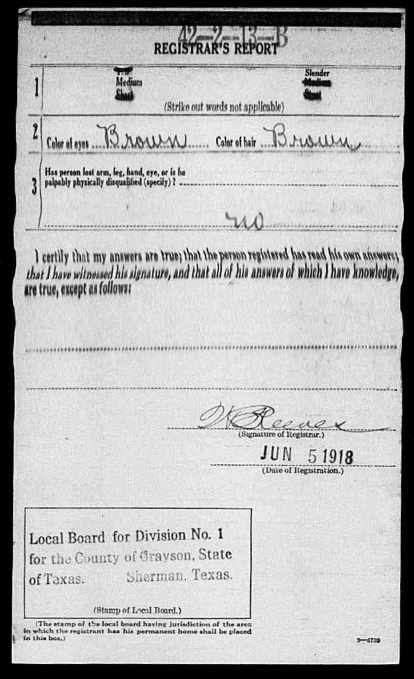 42-2-13-B
REGISTRAR'S REPORT
1 Tall Slender
Medium Medium
Short Stout
(Strike out words not applicable)
2 Color of eyes Brown Color of hair Brown
3 Has person lost arm, leg, hand, eye, or is he
palpably physically disqualified (specify)?
no
I certify that my answers are true; that the person registered has read his own answers;
that I have witnessed his signature, and that all of his answers of which I have knowledge,
are true, except as follows:
W B Reeves
(Signature of Registrar.)
JUN 5 1918
(Date of Registration.)
Local Board for Division No. 1
for the County of Grayson, State
of Texas. Sherman, Texas.
(Stamp of Local Board.)
(The stamp of the local board having jurisdiction of the area
in which the registrant has his permanent home shall be placed
in this box.)
3—6739